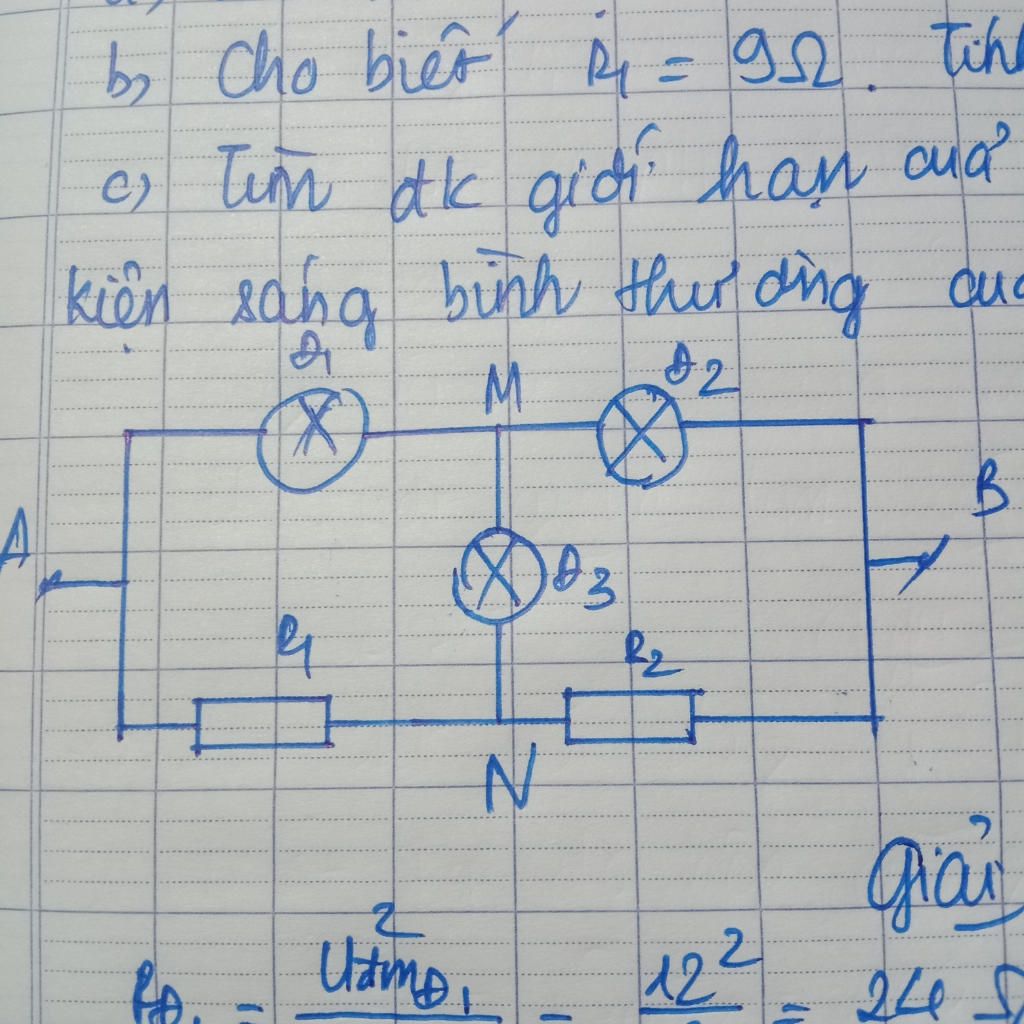 b, Cho biết R₁ = 9Ω. Tính
c) Tìm đk giới hạn của
kiện sáng bình thường của
Đ₁
M
Đ2
A
B
Đ3
R₁
R2
N
Giải
RĐ₁ = U²đmĐ₁ = 12² = 24 Ω